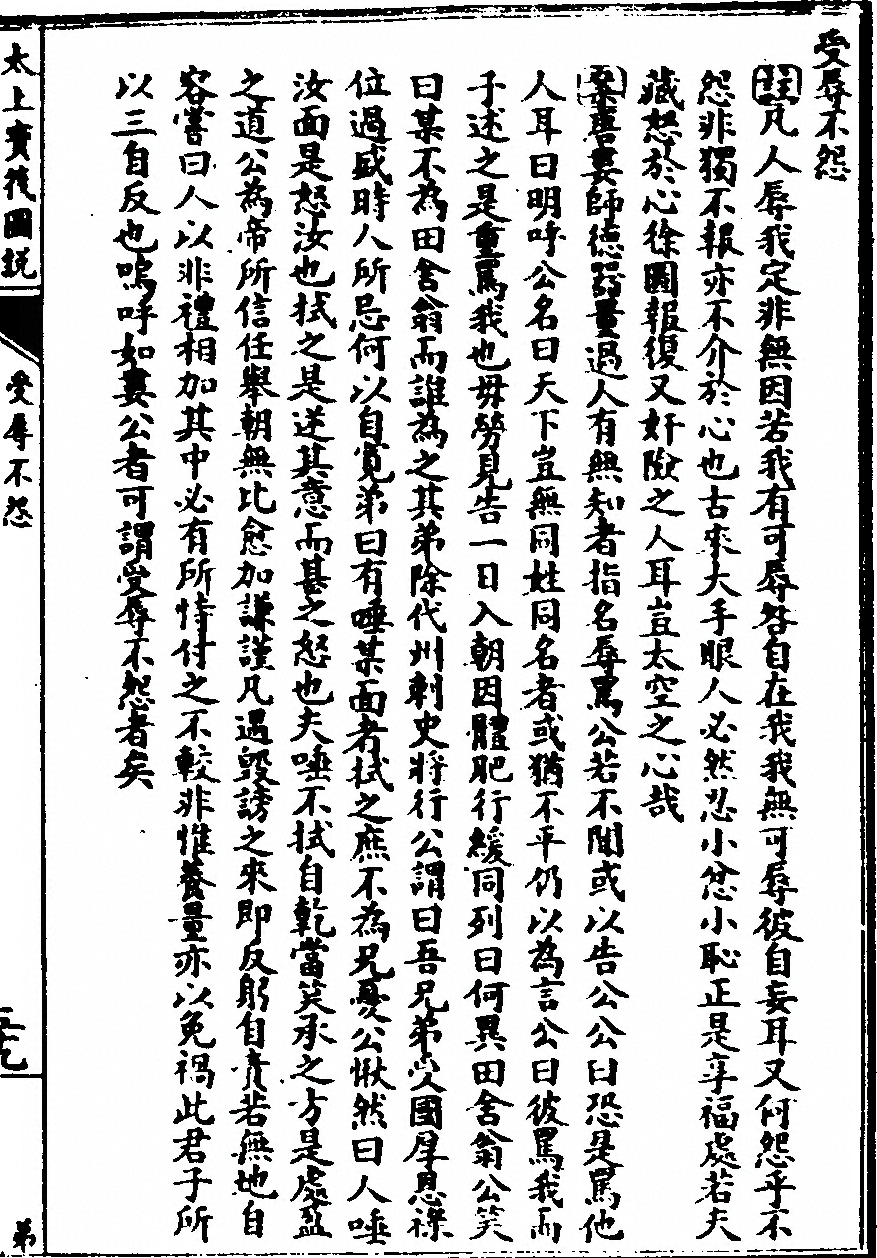 受辱不怨
註凡人辱我定非無因若我有可辱咎自在我我無可辱彼自妄耳又何怨乎不
怨非獨不報亦不介於心也古來大手眼人必然忍小忿小恥正是享福處若夫
藏怒於心徐圖報復又奸險之人耳豈太空之心哉
案唐婁師德器量過人有無知者指名辱罵公若不聞或以告公公曰恐是罵他
人耳曰明呼公名曰天下豈無同姓同名者或猶不平仍以為言公曰彼罵我而
子述之是重罵我也毋勞見告一日入朝因體肥行緩同列曰何異田舍翁公笑
曰某不為田舍翁而誰為之其弟除代州刺史將行公謂曰吾兄弟受國厚恩祿
位過盛時人所忌何以自寬弟曰有唾某面者拭之庶不為兄憂公愀然曰人唾
汝面是怒汝也拭之是逆其意而甚之怒也夫唾不拭自乾當笑承之方是處盈
之道公為帝所信任舉朝無比愈加謙謹凡遇毀謗之來即反躬自責若無地自
容嘗曰人以非禮相加其中必有所恃付之不較非惟養量亦以免禍此君子所
以三自反也嗚呼如婁公者可謂受辱不怨者矣
太上寶筏圖說
受辱不怨
弟